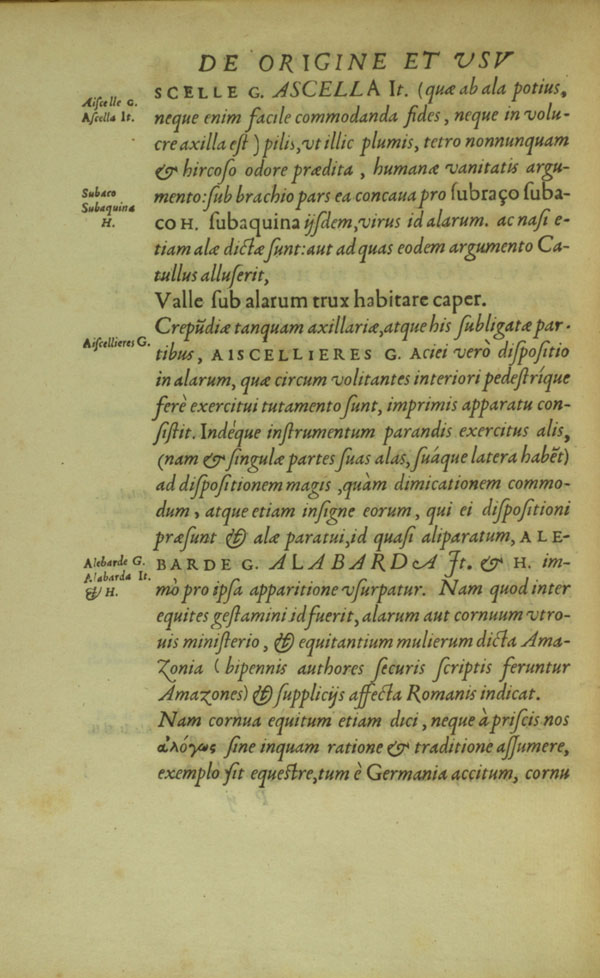 DE ORIGINE ET VSV
Aiſcelle G.
Aſcella It.
SCELLE G. ASCELLA It. (quæ ab ala potius,
neque enim facile commodanda fides, neque in volu-
cre axilla eſt) pilis, vt illic plumis, tetro nonnunquam
& hircoſo odore prædita, humanæ vanitatis argu-
Subaco
Subaquina
H.
mento: ſub brachio pars ea concaua pro ſubraço ſuba-
co H. ſubaquina ijſdem, virus id alarum. ac naſi e-
tiam alæ dictæ ſunt: aut ad quas eodem argumento Ca-
tullus alluſerit,
Valle ſub alarum trux habitare caper.
Crepũdiæ tanquam axillariæ, atque his ſubligatæ par-
Aiſcellieres G.
tibus, AISCELLIERES G. Aciei verò diſpoſitio
in alarum, quæ circum volitantes interiori pedeſtríque
ferè exercitui tutamento ſunt, imprimis apparatu con-
ſiſtit. Indéque inſtrumentum parandis exercitus alis,
(nam & ſingulæ partes ſuas alas, ſuáque latera habẽt)
ad diſpoſitionem magis, quàm dimicationem commo-
dum, atque etiam inſigne eorum, qui ei diſpoſitioni
præſunt & alæ paratui, id quaſi aliparatum, ALE-
Alebarde G.
Alabarda It.
& H.
BARDE G. ALABARDA It. & H. im-
mò pro ipſa apparitione vſurpatur. Nam quod inter
equites geſtamini id fuerit, alarum aut cornuum vtro-
uis miniſterio, & equitantium mulierum dicta Ama-
Zonia (bipennis authores ſecuris ſcriptis feruntur
Amazones) & ſupplicijs affecta Romanis indicat.
Nam cornua equitum etiam dici, neque à priſcis nos
ἀλόγως ſine inquam ratione & traditione aſſumere,
exemplo ſit equeſtre, tum è Germania accitum, cornu